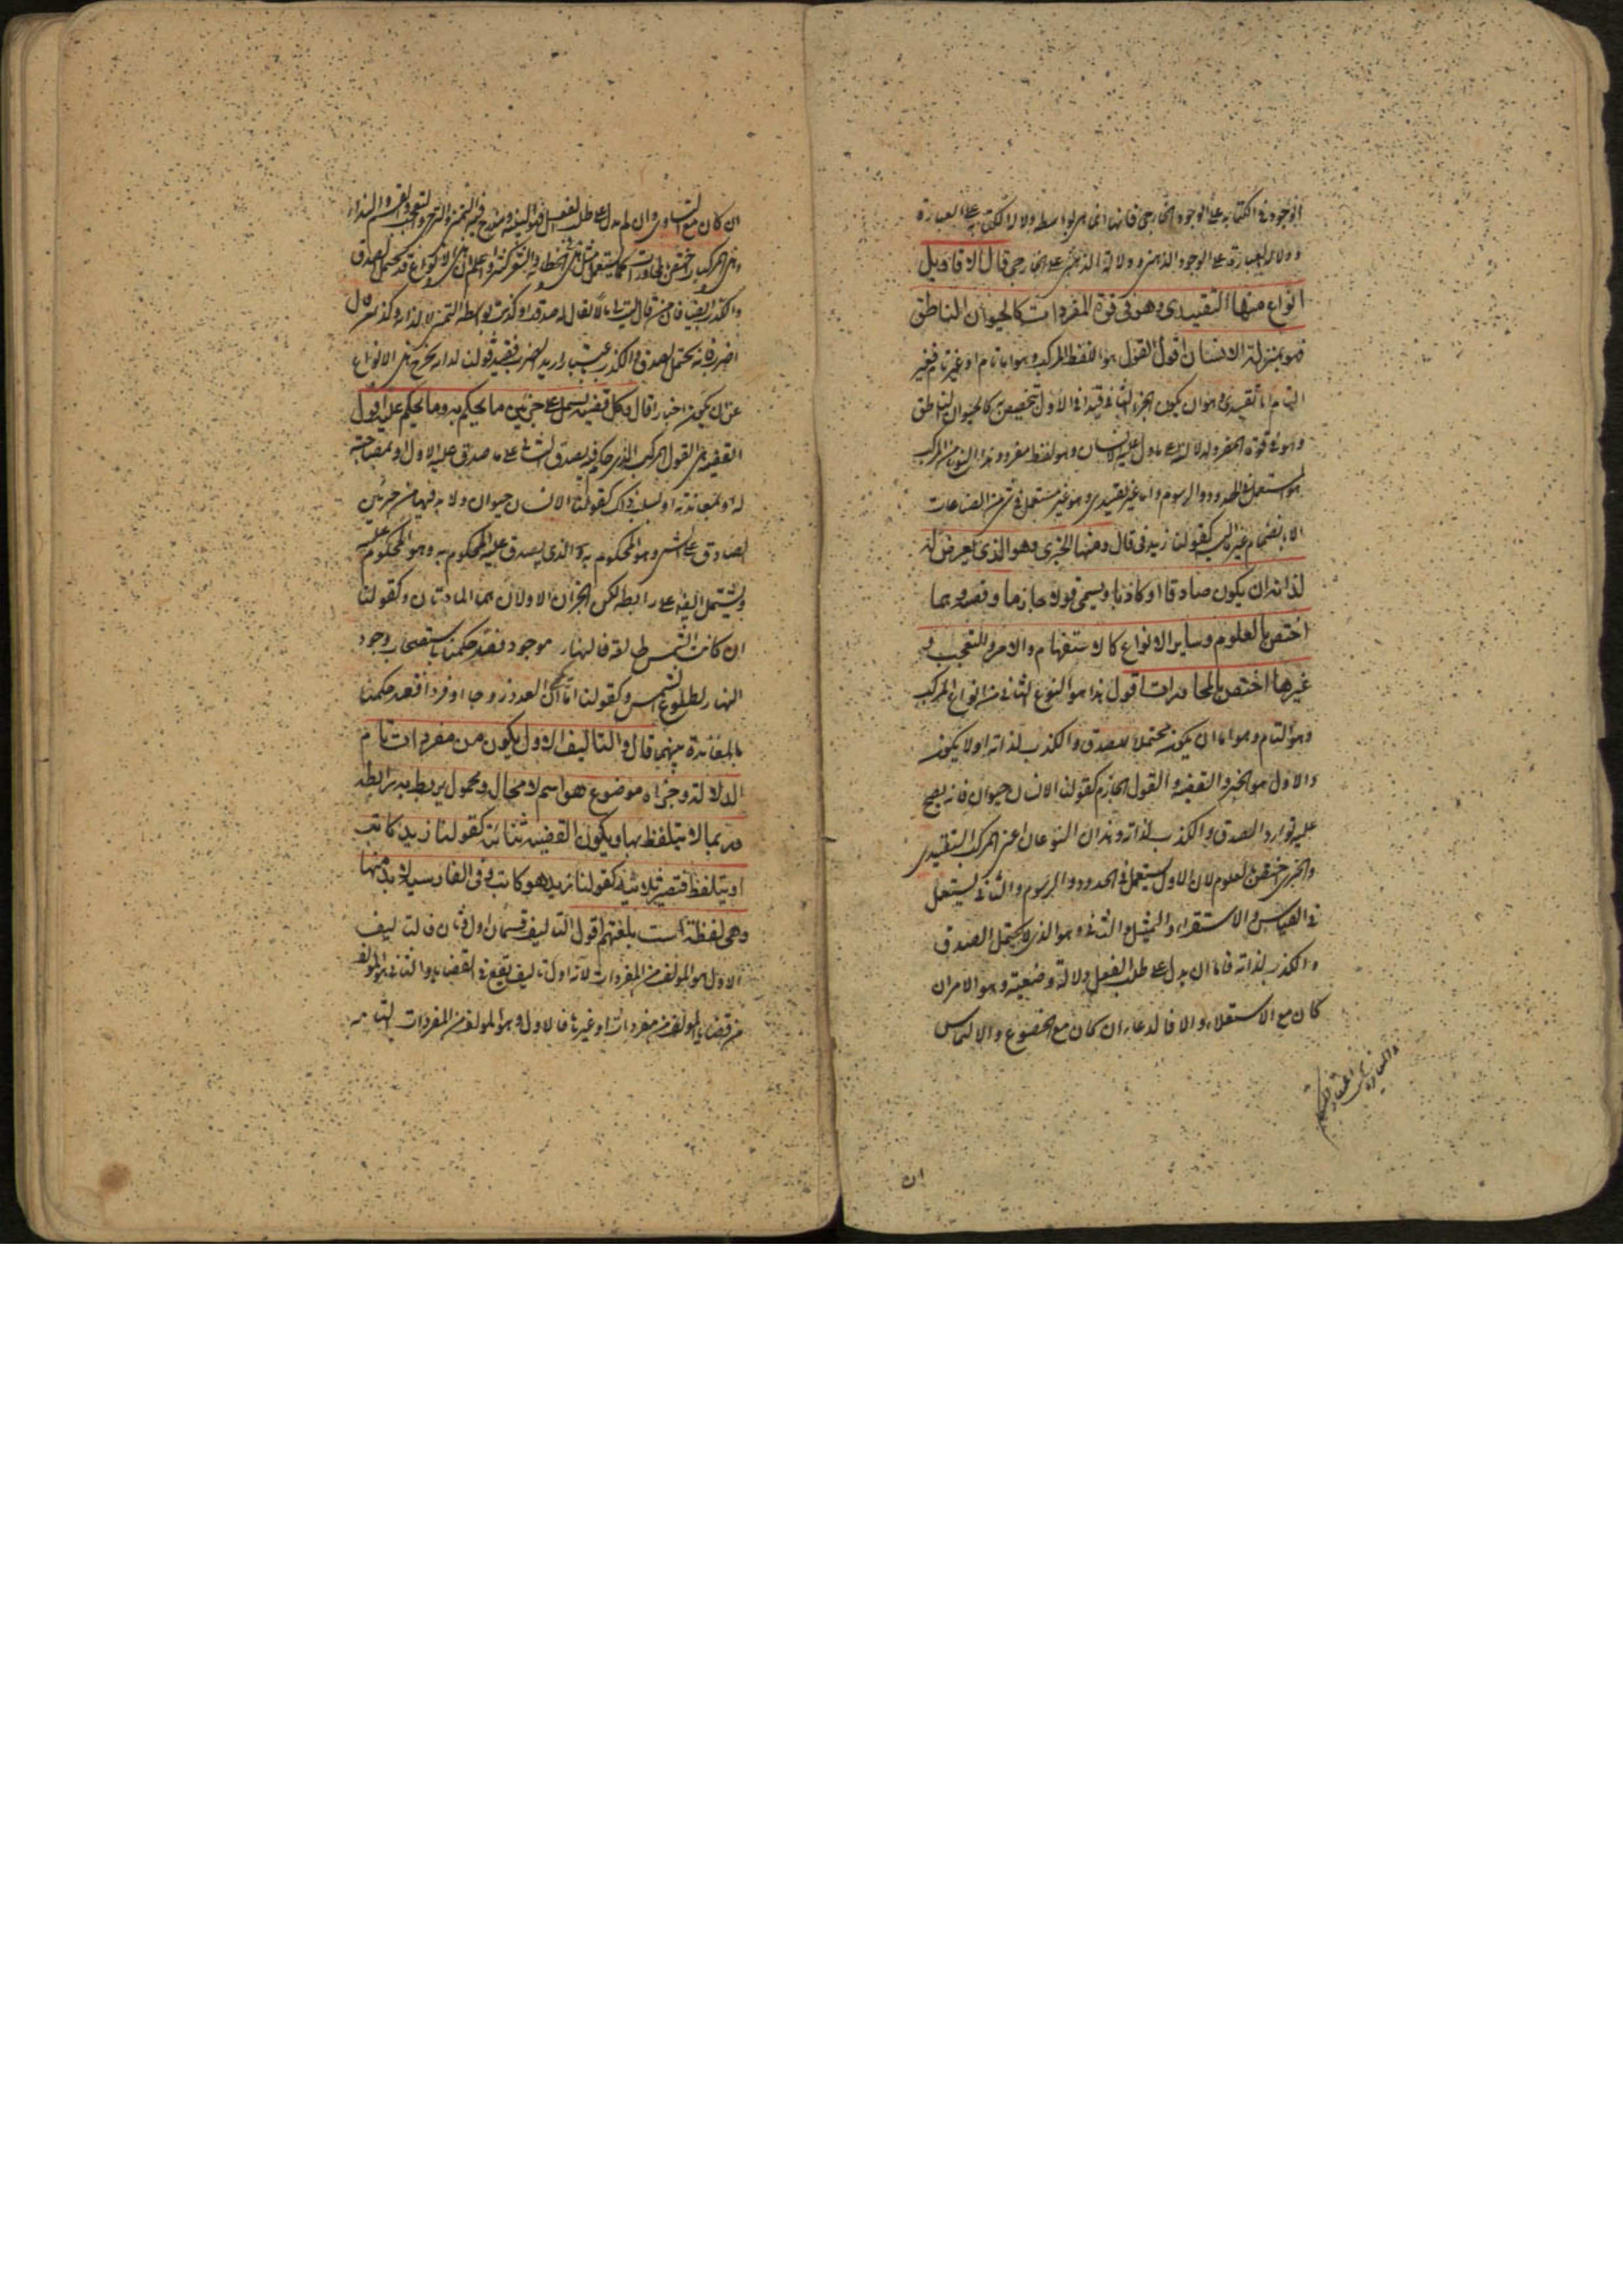 الوجود في الكتابة على الوجود الخارجي فانها انما هي بواسطة دلالة الكتابة على العبارة
ودلالة العبارة على الوجود الذهني ودلالة الذهني على الخارجي قال الاقاويل
انواع منها التقييدى وهو فى قوة المفردات كالحيوان الناطق
فهو بمنزلة الانسان اقول القول هو اللفظ المركب وهو اما تام او غير تام فغير
التام اما تقييدي وهو ان يكون الجزء الثاني قيدا في الاول يتخصص به كالحيوان الناطق
وهو في قوة المفرد لدلالته على ما دل عليه الانسان وهو لفظ مفرد وهذا النوع من المركب
هو المستعمل في الحدود والرسوم واما غير تقييدي وهو غير مستعمل في شئ من الصناعات
الا بانضمام غيره اليه كقولنا زيد في قال ومنها الخبرى وهو الذى يعرض له
لذاته ان يكون صادقا او كاذبا ويسمى قولا جازما وقضية وبما
اختص بالعلوم وساير الانواع كالاستفهام والامر والتعجب و
غيرها اختص بالمحاورات اقول هذا هو النوع الثاني من انواع المركب
وهو التام وهو اما ان يكون محتملا للصدق والكذب لذاته او لا يكون
والاول هو الخبر والقضية والقول الجازم كقولنا الانسان حيوان فانه يصح
عليه توارد الصدق والكذب لذاته وهذان النوعان اعني المركب التقييدي
والخبري اختص بالعلوم لان الاول يستعمل في الحدود والرسوم والثاني يستعمل
في القياس والاستقراء والتمثيل والثاني وهو الذي لا يحتمل الصدق
والكذب لذاته فاما ان يدل على طلب الفعل دلالة وضعية وهو الامر ان
كان مع الاستعلاء والا فالدعاء ان كان مع الخضوع والالتماس
ان
ان كان مع التساوي وان لم يدل على طلب الفعل فهو التنبيه ويندرج فيه التمني والترجي والتعجب والقسم والنداء
وهذا المركب اختص بالمحاورات كما يستعمل مثل هذا في الخطابة والشعر كثيرا واعلم ان هذه الانواع قد يحتمل الصدق
والكذب ايضا فان من قال ليت لي مالا يقال له صدقت او كذبت بواسطة التمني لا لذاته وكذا من قال
اضرب فانه يحتمل الصدق والكذب باعتبار اريد الضرب فبقيد قولنا لذاته يخرج هذه الانواع
عن ان يكون اخبارا قال وكل قضية تشتمل على جزئين ما يحكم به وما يحكم عليه اقول
القضية هي القول المركب الذي حكم فيه بصدق الثاني على ما صدق عليه الاول او بمصاحبته
له او بمعاندته او بسلب ذلك كقولنا الانسان حيوان ولا بد فيها من جزئين
الصادق على الشئ وهو المحكوم به والذي يصدق عليه المحكوم به وهو المحكوم عليه
ويشتمل ايضا على رابطة لكن الجزءان الاولان هما المادتان وكقولنا
ان كانت الشمس طالعة فالنهار موجود فقد حكمنا باستصحاب وجود
النهار لطلوع الشمس وكقولنا اما ان يكون العدد زوجا او فردا فقد حكمنا
بالمعاندة بينهما قال والتاليف الاول يكون من مفردات تام
الدلالة وجزءاه موضوع هو اسم لا محالة ومحمول يربط به برابطة
وربما لا يتلفظ بها ويكون القضية ثنائية كقولنا زيد كاتب
او يتلفظ فتصير ثلاثية كقولنا زيد هو كاتب وفى الفارسية لا بد منها
وهى لفظة است بلغتهم اقول التاليف قسمان اول وثان فالتاليف
الاول هو المؤلف من المفردات لانه اول تاليف يقع في القضايا والثاني هو المؤلف
من قضايا مؤلفة من مفردات او غيرها فالاول وهو المؤلف من المفردات التامة